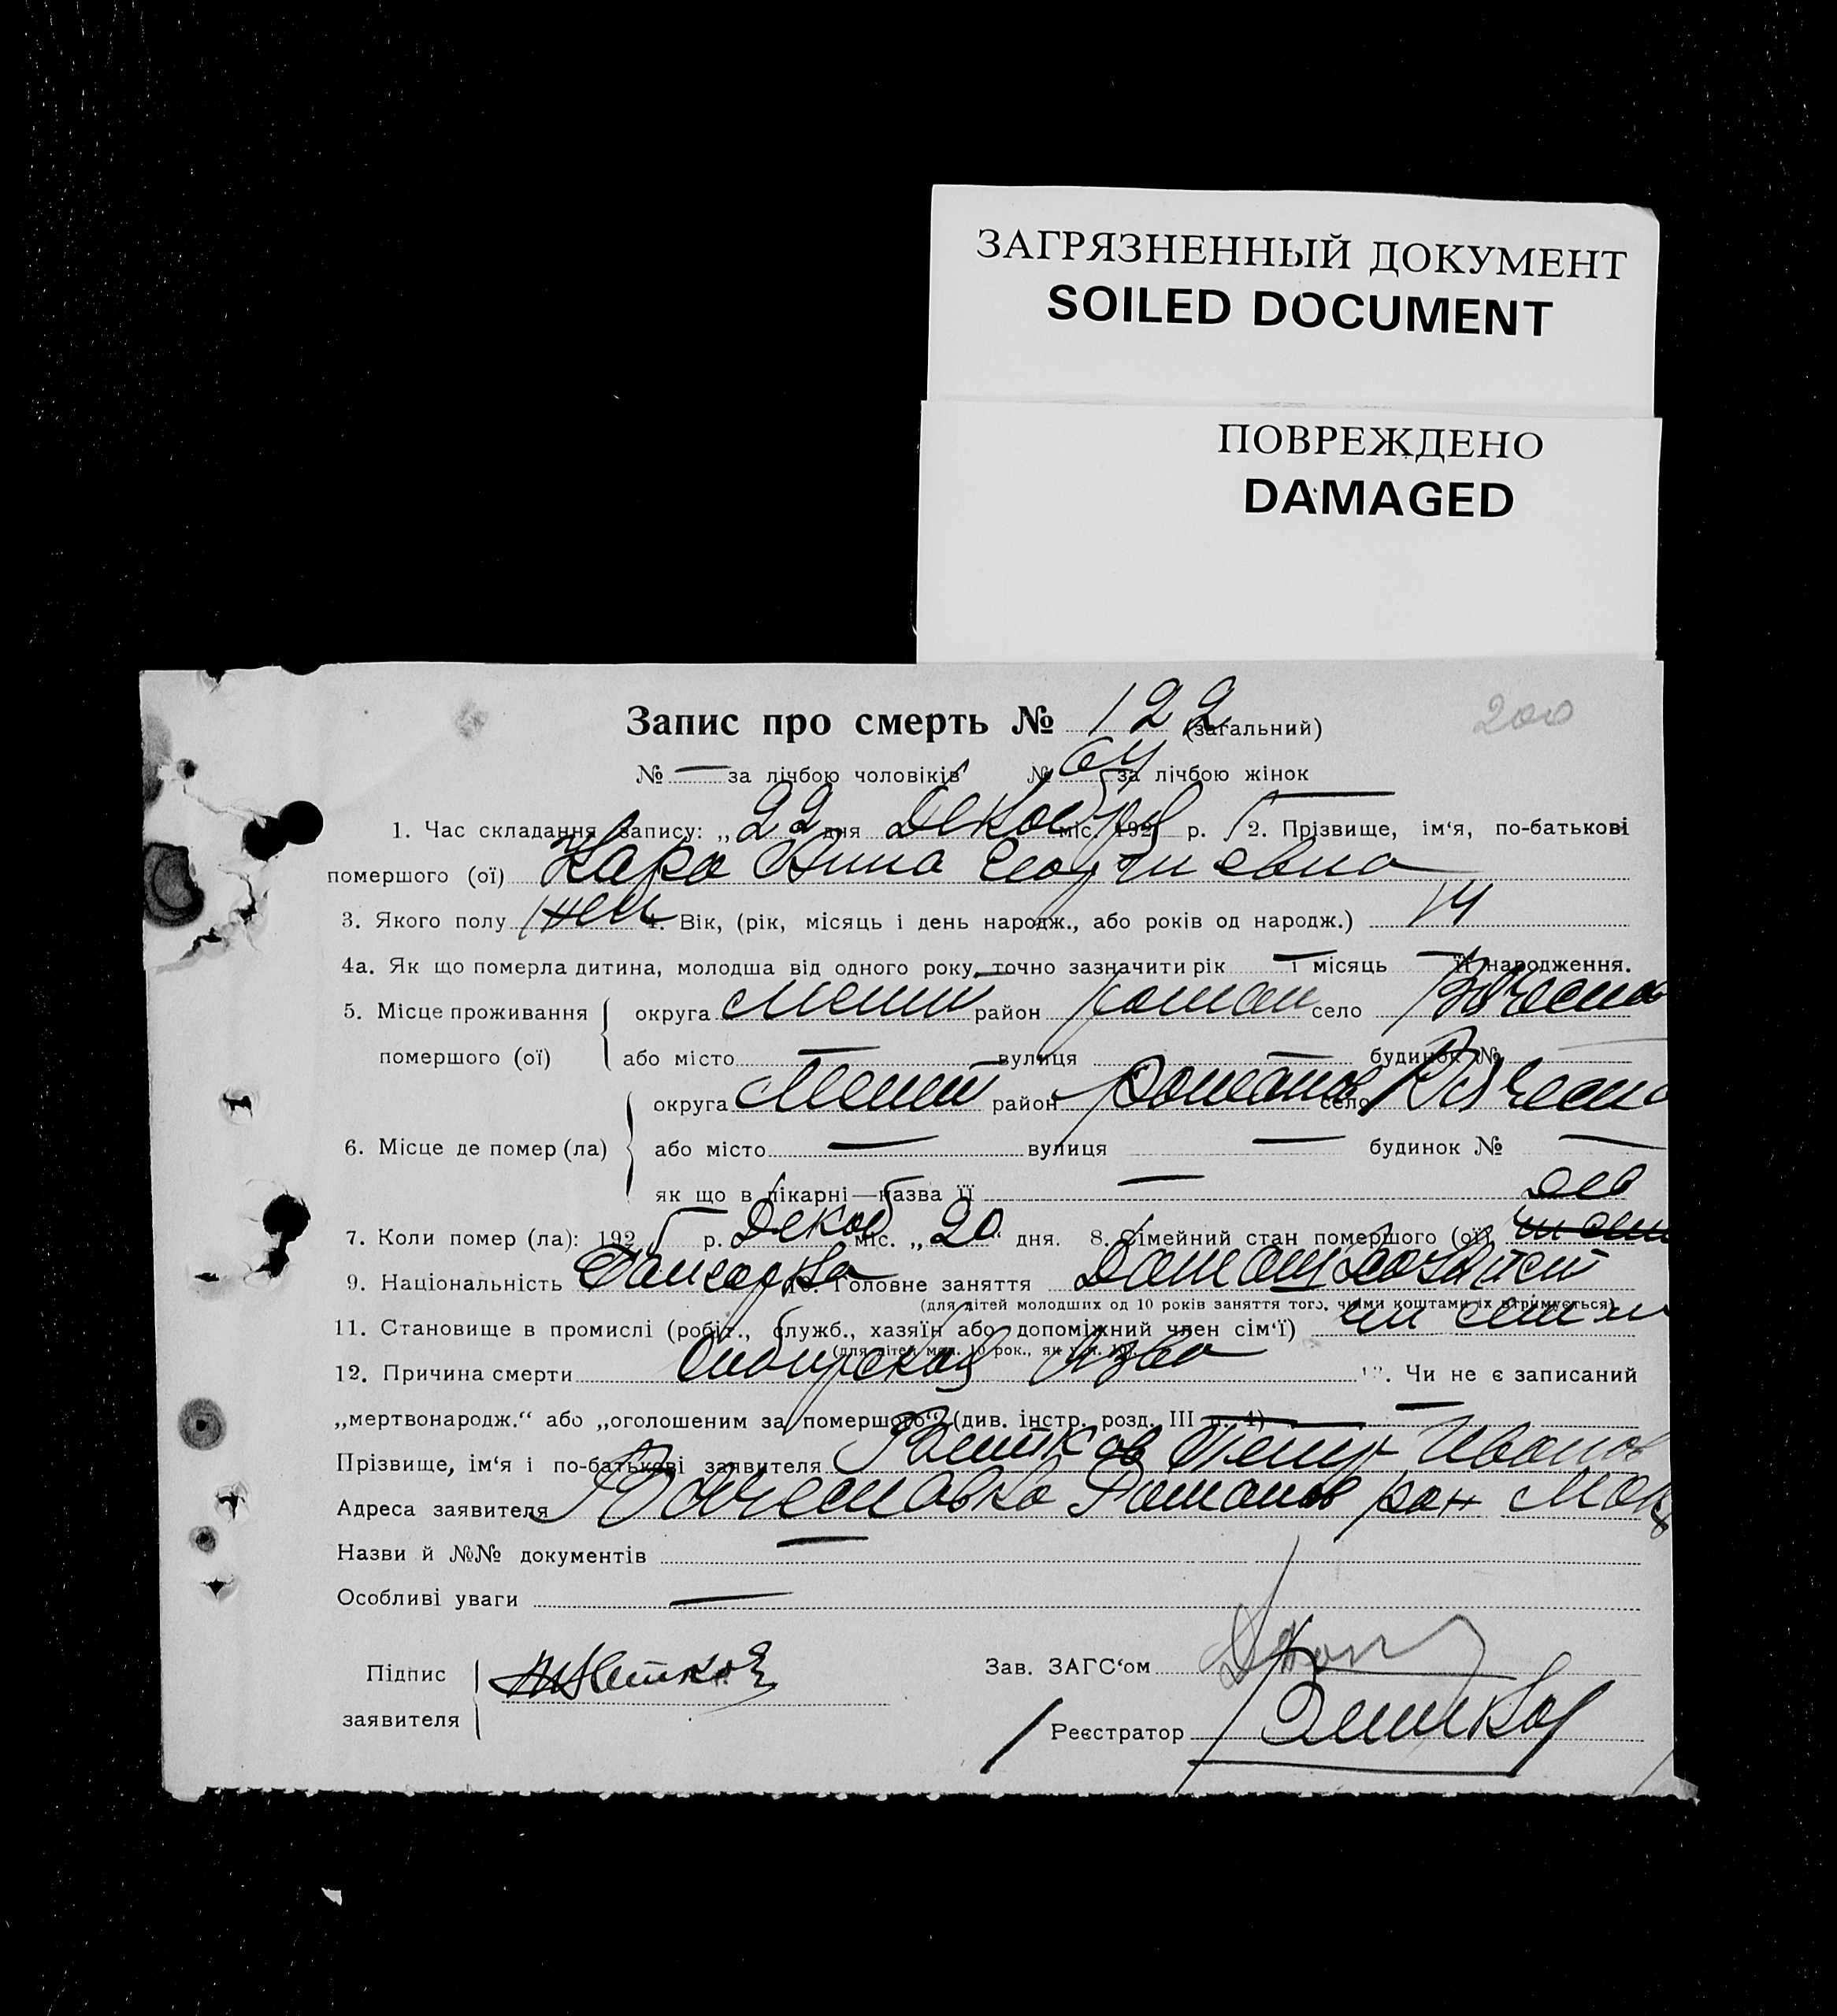 ЗАГРЯЗНЕННЫЙ ДОКУМЕНТ
SOILED DOCUMENT
ПОВРЕЖДЕНО
DAMAGED
200
Запис про смерть № 122 (загальний)
№ — за лічбою чоловіків № 64 за лічбою жінок
1. Час складання запису: „22 дня Декабря міс. 192 р. 2. Прізвище, ім‘я, по-батькові
помершого (ої) Кара Анна Георгиевна
3. Якого полу жен 4. Вік, (рік, місяць і день народж., або років од народж.) 14
4а. Як що померла дитина, молодша від одного року, точно зазначити рік — і місяць — її народження.
5. Місце проживання округа район село
помершого (ої) або місто — вулиця — будинок №
округа район село
6. Місце де помер (ла) або місто — вулиця — будинок № —
як що в лікарні—назва її —
7. Коли помер (ла): 1925 р. Декаб міс. „20“ дня. 8. Сімейний стан помершого (ої) дев
9. Національність 10. Головне заняття Домашн хозяйст
(для дітей молодших од 10 років заняття того, чиїми коштами їх втримується)
11. Становище в промислі (робіт., служб., хазяїн або допоміжний член сім‘ї) чл семьи
12. Причина смерти Сибирская Язва 13. Чи не є записаний
„мертвонародж.“ або „оголошеним за помершого“ (див. інстр. розд. III п. 4) —
Прізвище, ім‘я і по-батькові заявителя Петр Иванов
Адреса заявителя район
Назви й №№ документів —
Особливі уваги —
Підпис
заявителя
Зав. ЗАГС‘ом
Реєстратор